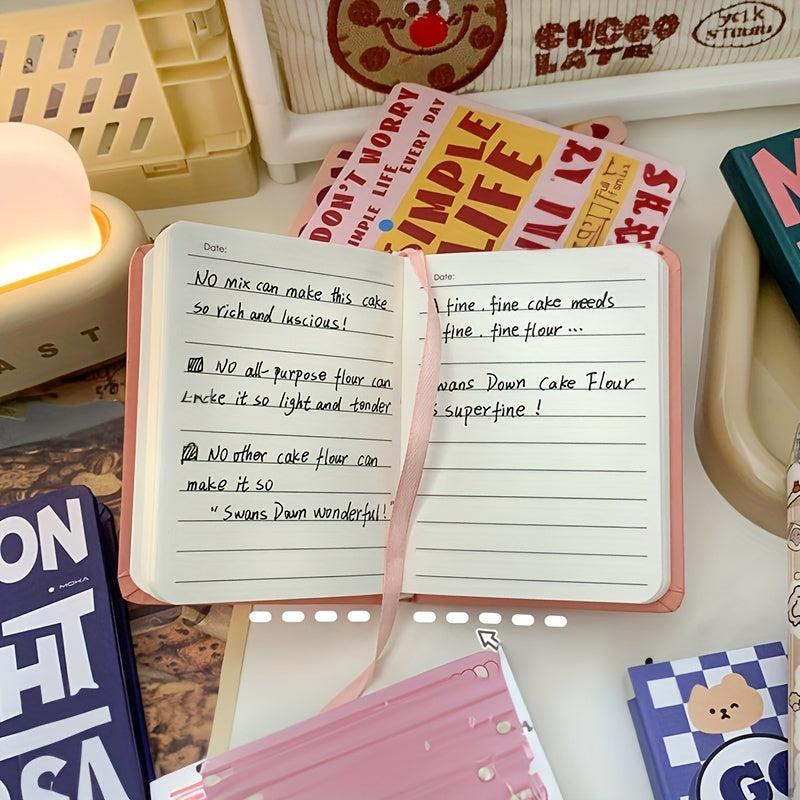 CHOCO
LATE
DON'T WORRY
SIMPLE LIFE EVERY DAY
SIMPLE
LIFE
Date:
NO mix can make this cake
so rich and luscious!
NO all-purpose flour can
make it so light and tender
NO other cake flour can
make it so
"Swans Down wonderful!"
Date:
fine. fine cake needs
fine. fine flour...
wans Down Cake Flour
s superfine!
AST
ON
MOKA
HT
GO